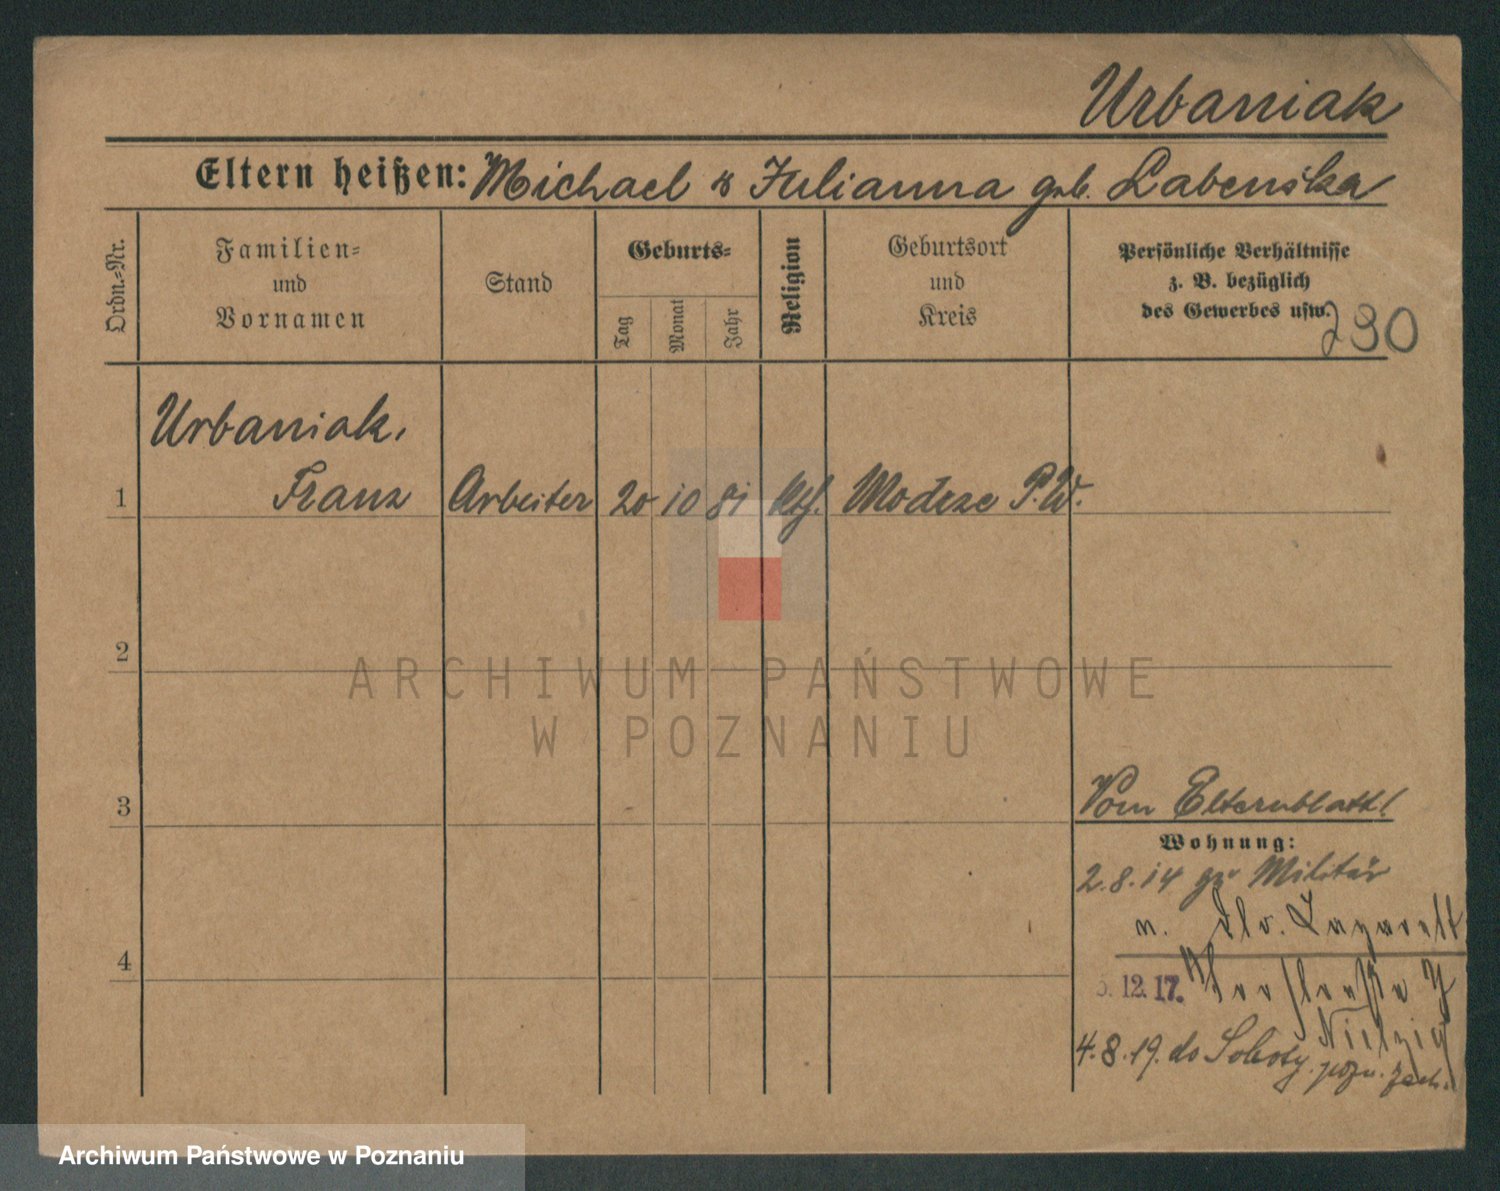 Urbaniak
Eltern heißen: Michael & Julianna geb. Labenska
Ordn.-Nr.
Familien-
und
Vornamen
Stand
Geburts-
Tag
Monat
Jahr
Religion
Geburtsort
und
Kreis
Persönliche Verhältnisse
z. B. bezüglich
des Gewerbes usw.
290
Urbaniak,
1 Franz Arbeiter 20 10 81 kth. Modrze P.W.
2
3
4
Vom Elternblatt!
Wohnung:
2.8.14 zu Militär
Lazarett
5.12.17.
4.8.19. do Soboty. pozn. zach.
ARCHIWUM PAŃSTWOWE
W POZNANIU
Archiwum Państwowe w Poznaniu